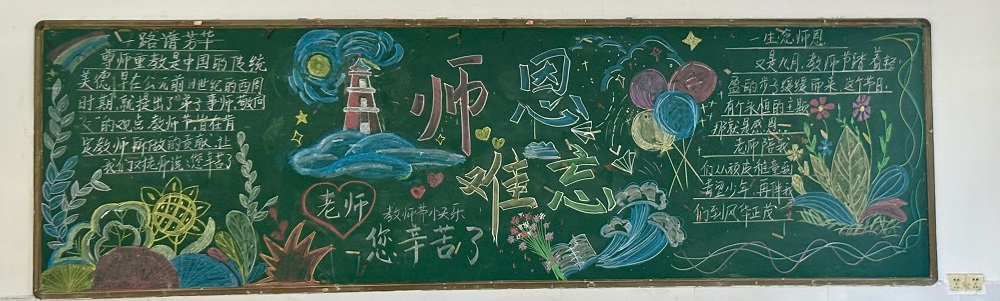 一路谱芳华
尊师重教是中国的传统
美德,早在公元前11世纪的西周
时期,就提出了"弟子事师,敬同
父"的观点,教师节,旨在肯
定教师所做的贡献,让
我们对老师说:您辛苦了
师恩
难忘
老师
教师节快乐
您辛苦了
一生念师恩
又是九月,教师节踏着轻
盈的步子缓缓而来,这个节日,
有个永恒的主题
那就是感恩…
老师陪我
们从顽皮稚童到
希望少年,再伴我
们到风华正茂